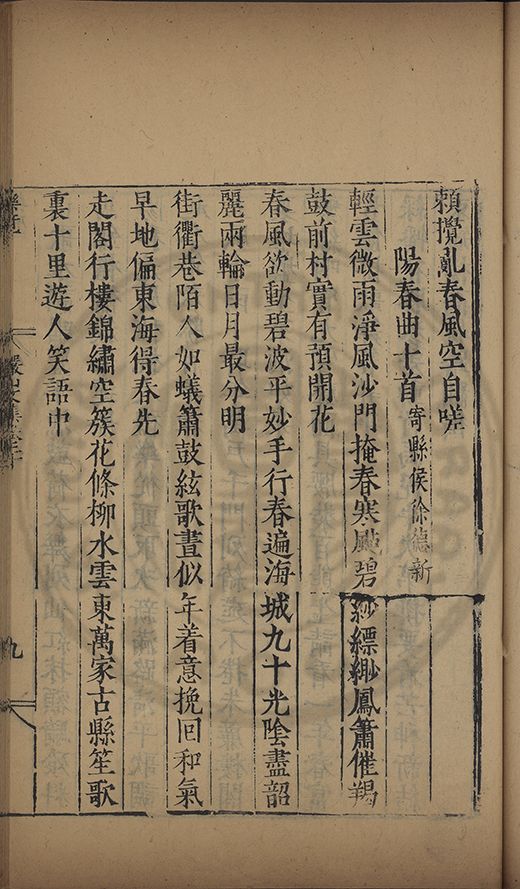 頼攪亂春風空自嗟
陽春曲十首 寄縣侯徐德新
輕雲微雨淨風沙門掩春寒颭碧紗縹緲鳳簫催羯
鼓前村實有預開花
春風欲動碧波平妙手行春遍海城九十光陰盡韶
麗兩輪日月最分明
街衢巷陌人如蟻簫鼓絃歌晝似年着意挽回和氣
早地偏東海得春先
走閣行樓錦繡空簇花條柳水雲東萬家古縣笙歌
裏十里遊人笑語中
九